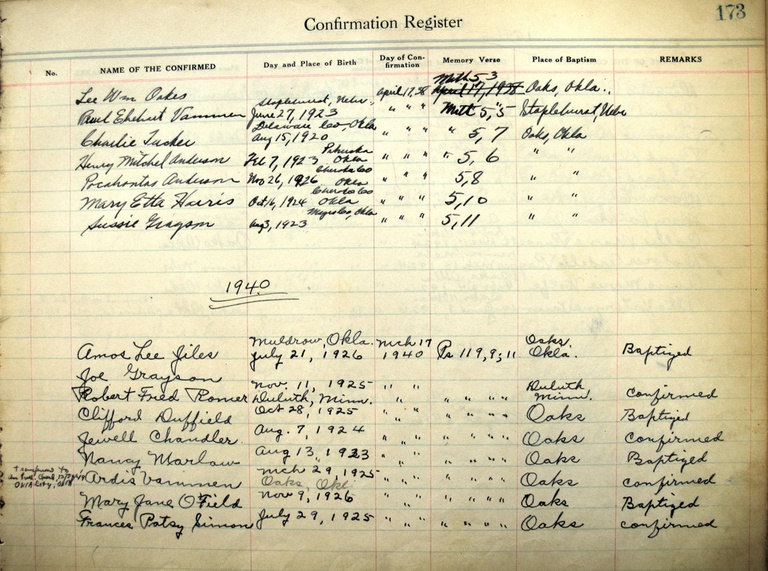 173
Confirmation Register
No. NAME OF THE CONFIRMED Day and Place of Birth Day of Confirmation Memory Verse Place of Baptism REMARKS
Lee Wm Oakes April 17, 38 Math 5 3 April 17, 1938 Oaks, Okla.
Staplehurst, Nebr.
Paul Ekehart Vammen June 27, 1923 " " " Math 5, 5 Staplehurst, Nebr
Delaware Co, Okla
Charlie Tucker Aug 15, 1920 " " " " 5, 7 Oaks, Okla
Pahuska
Henry Mitchel Anderson Feb 7, 1923 Okla " " " " 5, 6 " "
Cherokee Co
Pocahontas Anderson Nov 26, 1926 Okla " " " 5,8 " "
Cherokee Co
Mary Etta Harris Oct 16, 1924 Okla " " " 5,10 " "
Mayes Co, Okla
Sussie Grayson Aug 3, 1923 " " " 5,11 " "
1940
Muldrow, Okla. Mch 17 Oaks,
Amos Lee Jiles July 21, 1926 1940 Ps 119, 9; 11 Okla. Baptized
Joe Grayson
Nov. 11, 1925 " " Duluth
Robert Fred Romer Duluth, Minn. " " " " Minn. confirmed
Clifford Duffield Oct 28, 1925 " " " " " " Oaks Baptized
Jewell Chandler Aug. 7, 1924 " " " " " " Oaks confirmed
Nancy Marlow Aug 13, 1923 " " " " " " Oaks Baptized
Ardis Vammen Mch 29, 1925 " " " " " " Oaks confirmed
Oaks, Okl.
Okla City, Okla
Mary Jane O'Field Nov 9, 1926 " " " " " " Oaks Baptized
Frances Patsy Simon July 29, 1925 " " " " " " Oaks confirmed